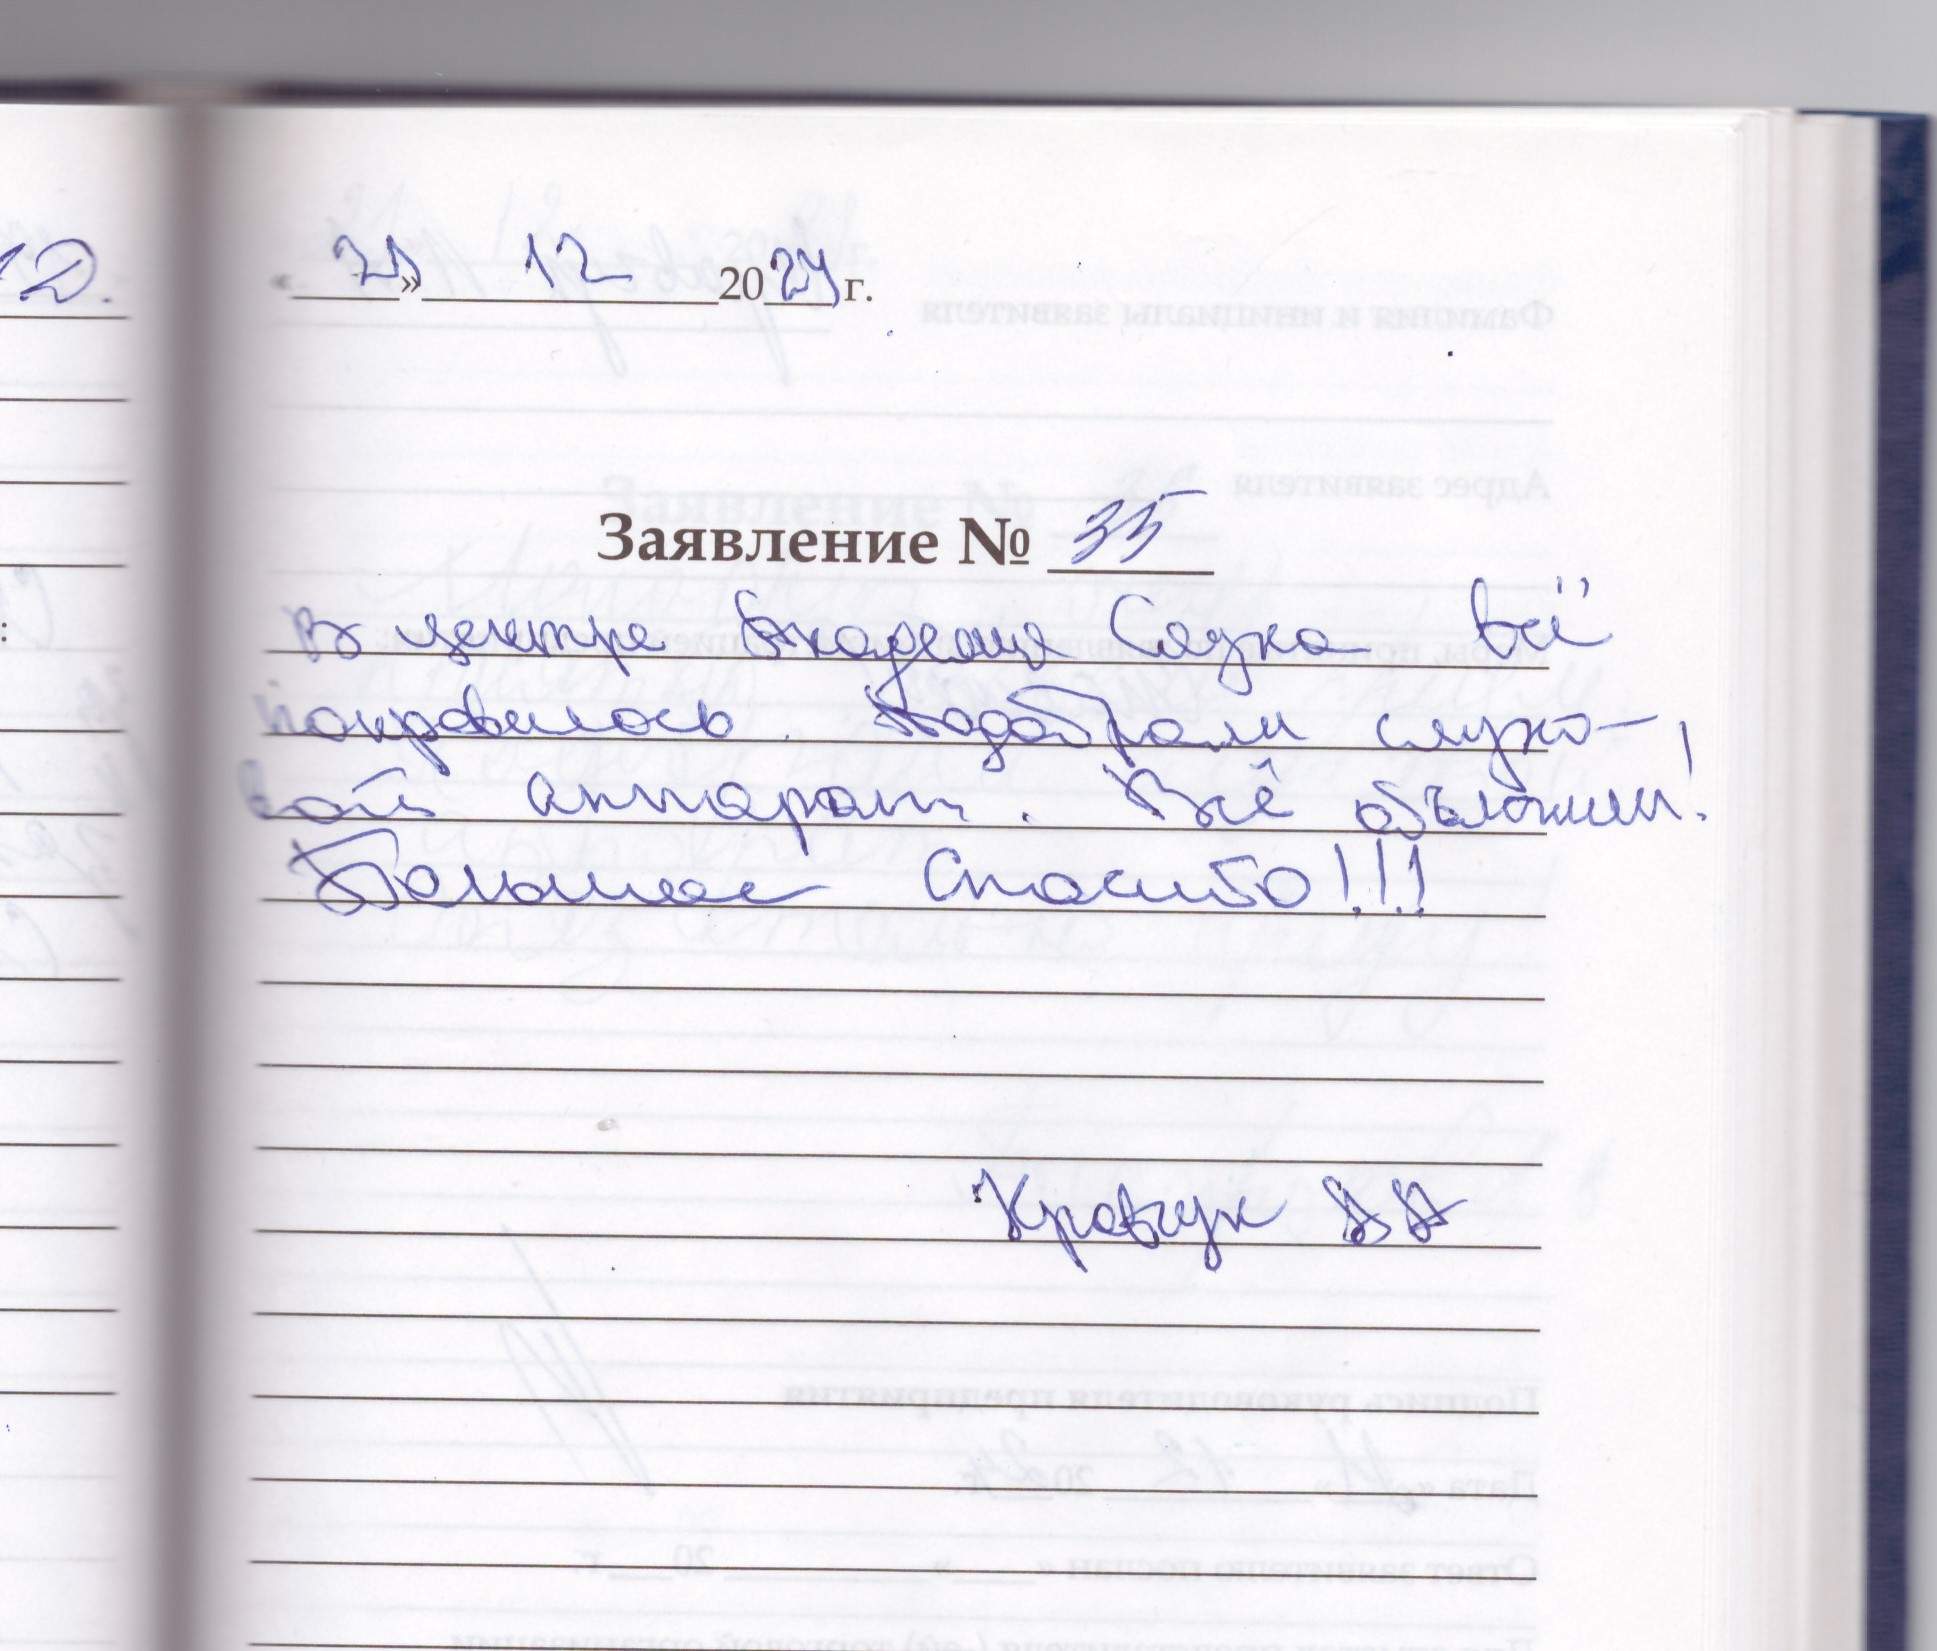 «21» 12 2024 г.
Заявление № 35
В центре Академия Слуха всё
понравилось. Подобрали слухо-
вой аппарат. Всё объяснили!
Большое Спасибо!!!
Кравчук